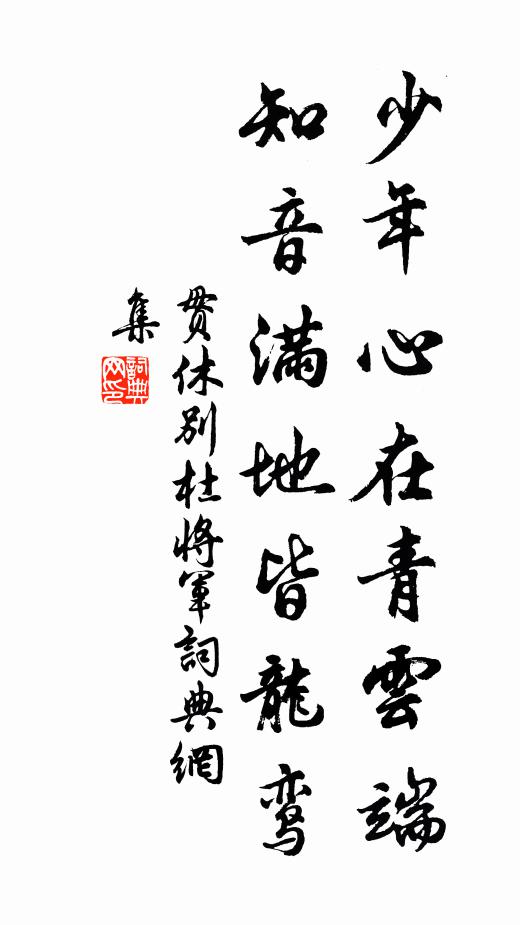 少年心在青雲端
知音满地皆龍鸾
贯休别杜将軍詞典網
集
詞典
网印